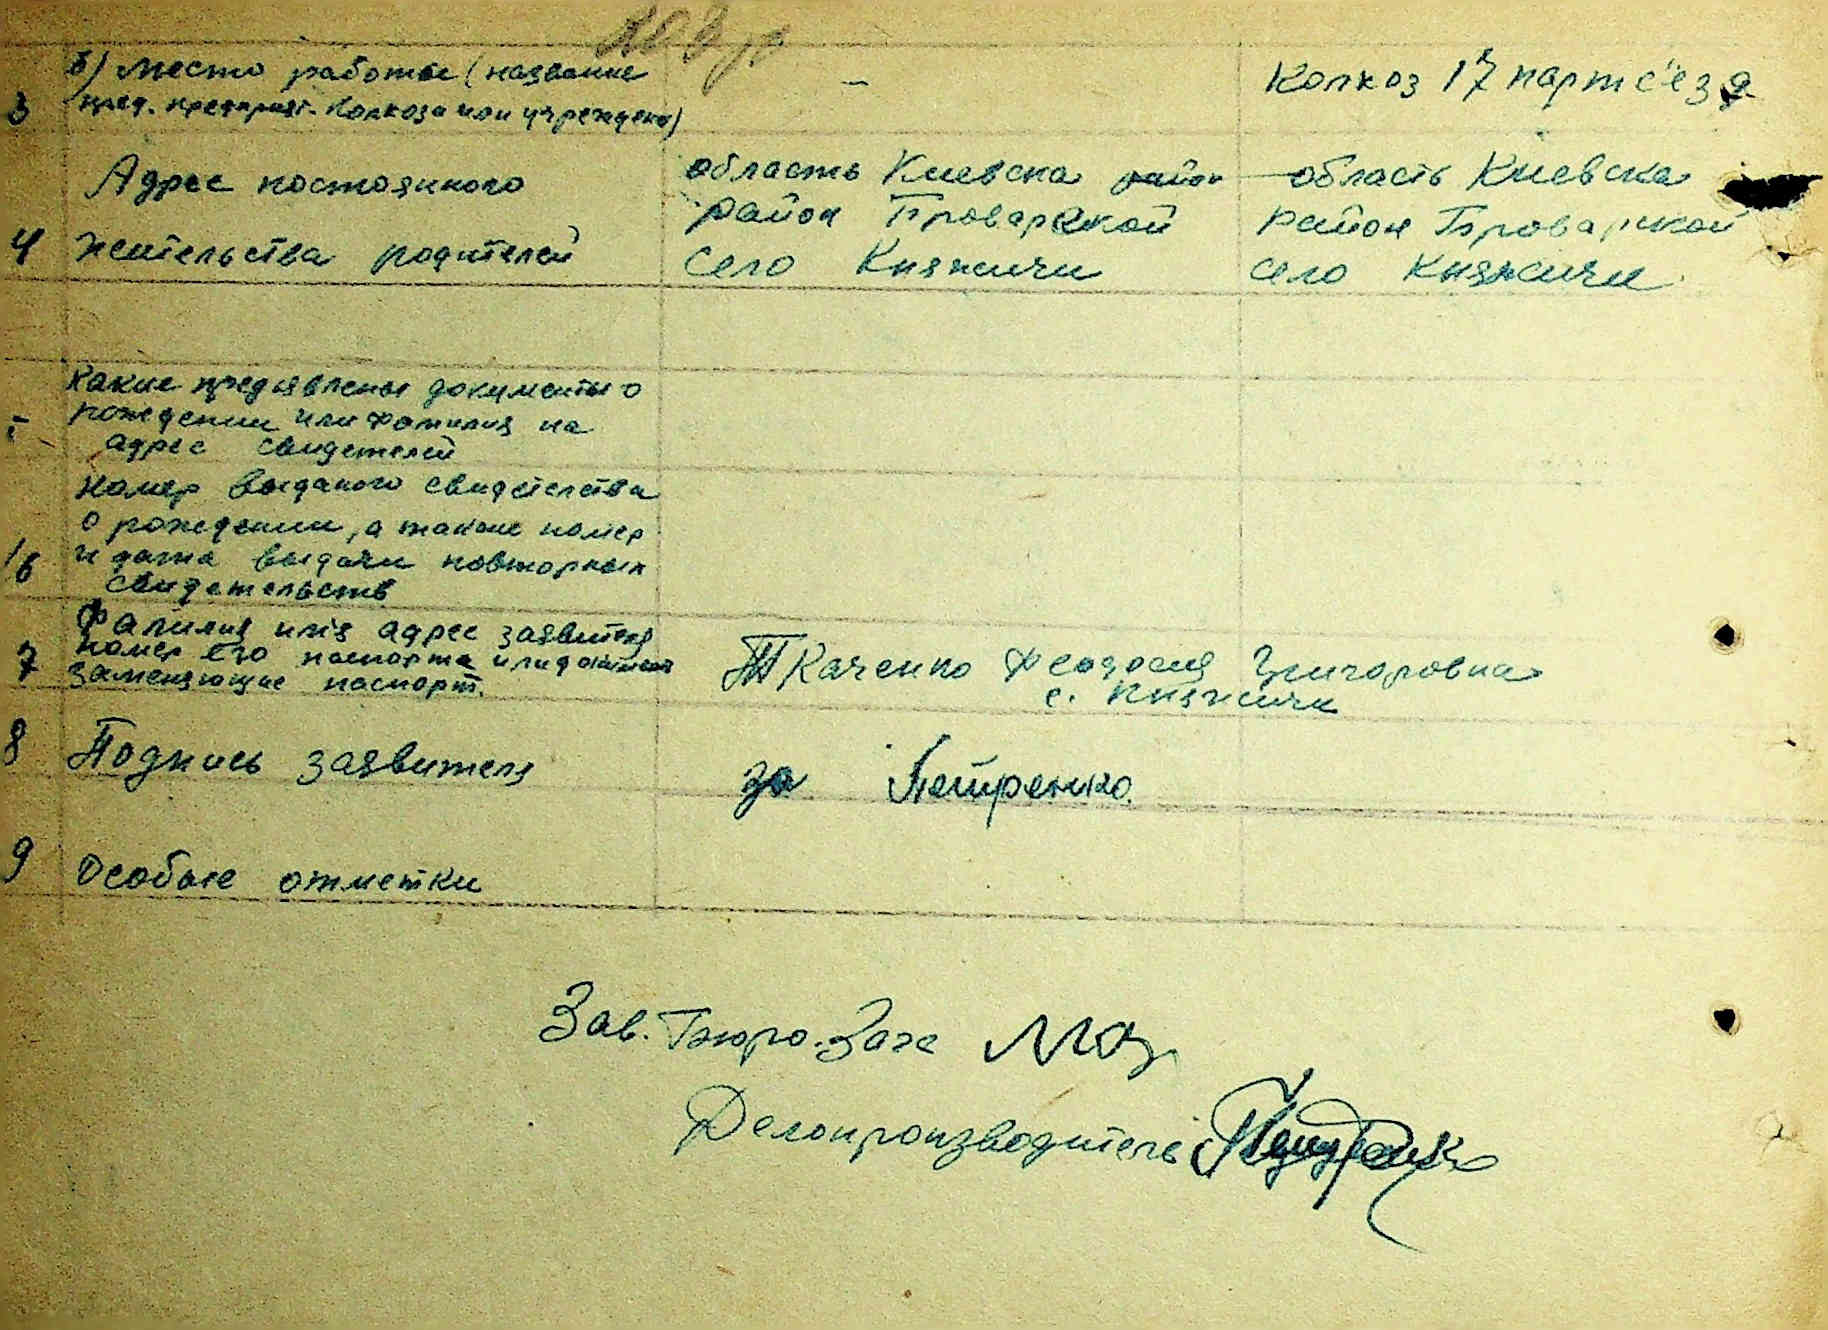 б) Место работы (название
— Колхоз 17 партс'езд
3 пред. предприят. Колхоза или учрежден.)
Адрес постоянного
область Киевска район
район Броварской
село Княжичи
область Киевска
район Броварской
село Княжичи
4 жительства родителей
Какие предявлены документы о
рождении или фамилия на
адрес свидетелей
номер выданого свидетелства
о рождении, а также номер
16 и дата выдачи повторных
свидетельств
Фамилия имя адрес заявителя
номер его паспорта или документ
7 заменяющие паспорт.
Ткаченко Феодосия Григоровна
с. Княжичи
8 Подпись заявителя
за Петренко.
9 Особые отметки
Зав. Бюро. Загс
Делопроизводитель